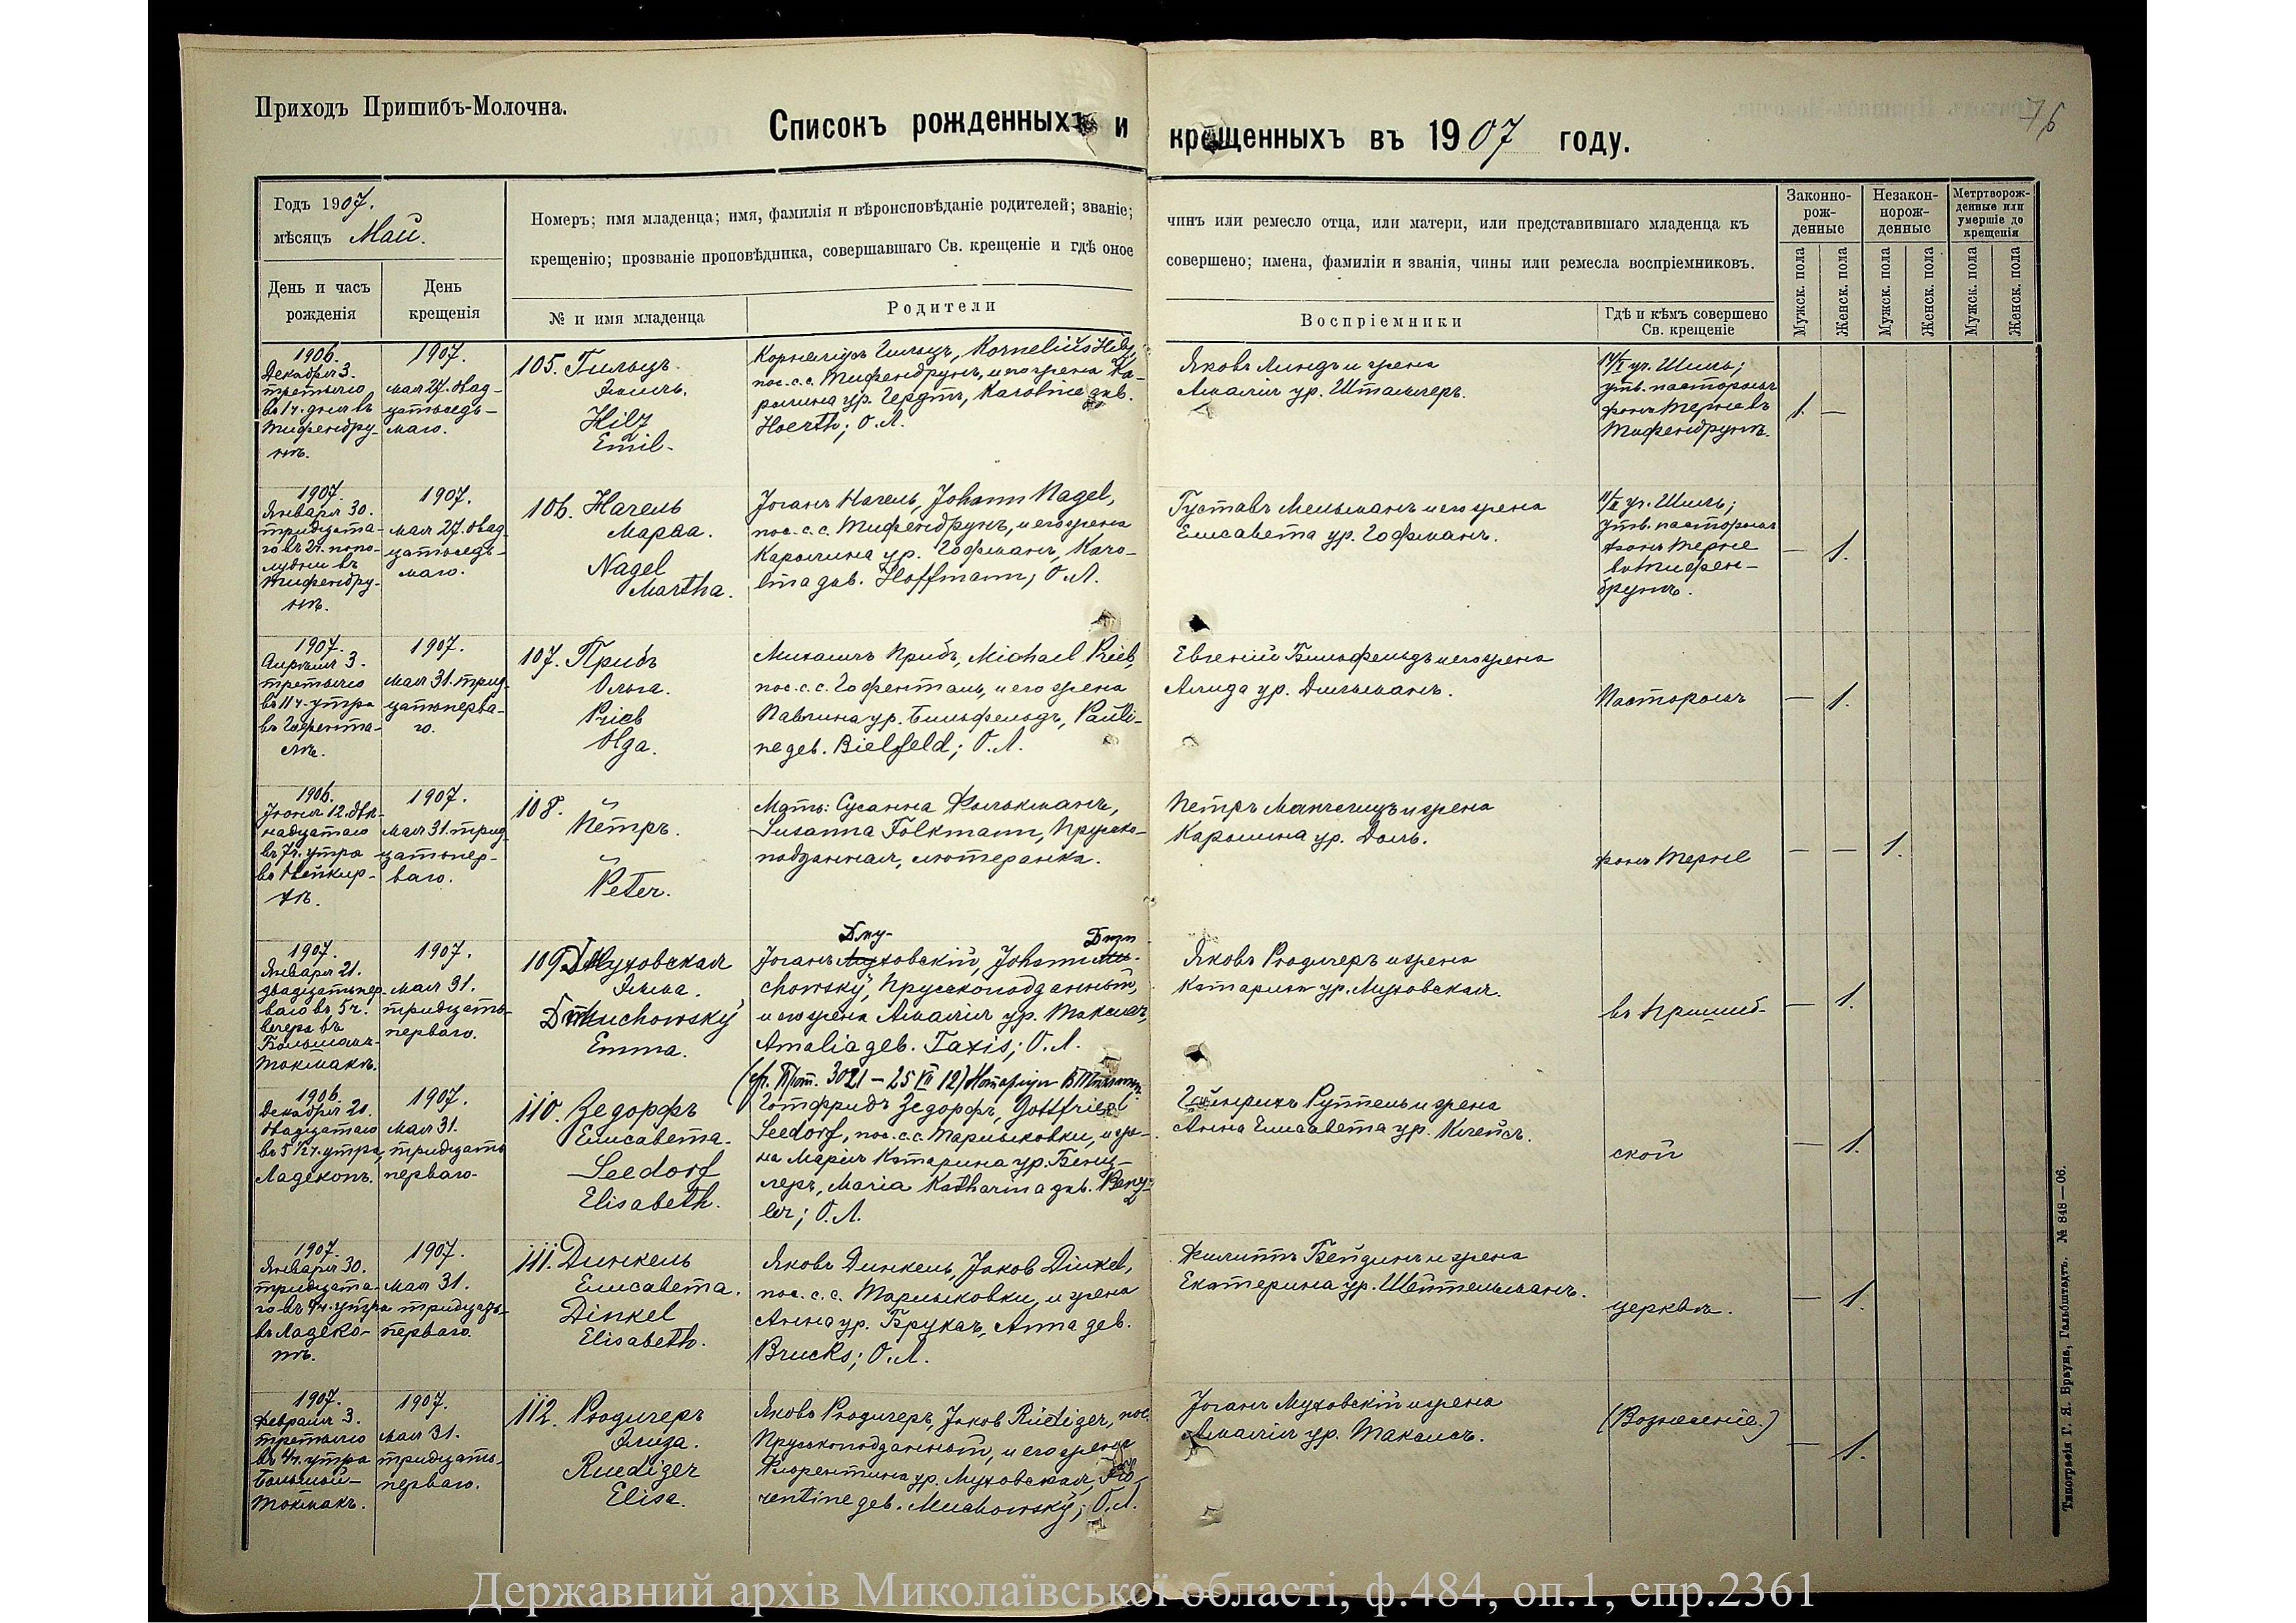 Приходъ Пришибъ-Молочна.
76
Списокъ рожденныхъ и крещенныхъ въ 1907 году.
Годъ 1907.
мѣсяцъ Май.
День и часъ рожденія
День крещенія
Номеръ; имя младенца; имя, фамилія и вѣроисповѣданіе родителей; званіе; чинъ или ремесло отца, или матери, или представившаго младенца къ
крещенію; прозваніе проповѣдника, совершавшаго Св. крещеніе и гдѣ оное совершено; имена, фамиліи и званія, чины или ремесла воспріемниковъ.
№ и имя младенца
Родители
Воспріемники
Гдѣ и кѣмъ совершено
Св. крещеніе
Законно-
рож-
денные
Незакон-
норож-
денные
Метртворож-
денные или
умершіе до
крещенія
Мужск. пола
Женск. пола
Мужск. пола
Женск. пола
Мужск. пола
Женск. пола
1906.
Декабря 3.
третьяго
въ 1 ч. дня въ
Тифенбру-
нѣ.
1907.
Мая 27. двад-
цатьседь-
маго.
105. Гильцъ
Эмиль.
Hilz
Emil.
Корнеліусъ Гильцъ, Kornelius Hilz,
пос. с. с. Тифенбрунъ, и его жена Ка-
ролина ур. Гердтъ, Karoline geb.
Hoerth; О. Л.
Яковъ Линдъ и жена
Амалія ур. Штамлеръ.
уч. Шиль;
утв. пасторомъ
фонъ Терне въ
Тифенбрунѣ.
1. —
1907.
Января 30.
тридцата-
го въ 2 ч. попо-
лудни въ
Тифенбру-
нѣ.
1907.
Мая 27. двад-
цатьседь-
маго.
106. Нагель
Марѳа.
Nagel
Martha.
Іоганъ Нагель, Johann Nagel,
пос. с. с. Тифенбрунъ, и его жена
Каролина ур. Гофманъ, Karo-
lina geb. Hoffmann; О. Л.
Густавъ Мельманъ и его жена
Елисавета ур. Гофманъ.
уч. Шиль;
утв. пасторомъ
фонъ Терне
въ Тифен-
брунѣ.
— 1.
1907.
Апрѣля 3.
третьяго
въ 11 ч. утра
въ Гофента-
лѣ.
1907.
Мая 31. трид-
цатьперва-
го.
107. Прибъ
Ольга.
Prieb
Olga.
Михаилъ Прибъ, Michael Prieb,
пос. с. с. Гофенталь, и его жена
Павлина ур. Бильфельдъ, Pauli-
ne geb. Bielfeld; О. Л.
Евгеній Бильфельдъ и его жена
Алида ур. Дильманъ.
Пасторомъ
— 1.
1906.
Іюня 12. две-
надцатаго
въ 7 ч. утра
въ Нейкир-
хѣ.
1907.
Мая 31. трид-
цатьпер-
ваго.
108.
Петръ.
Peter.
Мать: Сусанна Фолькманъ,
Susanna Folkmann, Прусско-
подданная, лютеранка.
Петръ Манчлицъ и жена
Каролина ур. Доль.
фонъ Терне
— — 1.
1907.
Января 21.
двадцатьпер-
ваго въ 5 ч.
вечера въ
Большомъ-
Токмакѣ.
1907.
Мая 31.
тридцать-
перваго.
109. Дмуховская
Эмма.
Dmuchowsky
Emma.
Дму-
Dmu
Іоганъ Муховскій, Johann Mu-
chowsky, Прусскоподданный,
и его жена Амалія ур. Таксисъ,
Amalia geb. Taxis; О. Л.
(ср. Прот. 3021 — 25 VII 12)
Яковъ Рюдигеръ и жена
Катарина ур. Муховская.
въ Пришиб-
— 1.
1906.
Декабря 20.
двадцатаго
въ 5 1/2 ч. утра
Ладекопъ.
1907.
Мая 31.
тридцать
перваго.
110. Зедорфъ
Елисавета.
Seedorf
Elisabeth.
Готфридъ Зедорфъ, Gottfried
Seedorf, пос. с. с. Марьяновки, и же-
на Марія Катарина ур. Бенц-
леръ, Maria Katharina geb. Benz-
ler; О. Л.
Гейнрихъ Руппель и жена
Анна Елисавета ур. Клейсъ.
ской
— 1.
1907.
Января 30.
тридцата-
го въ 4 ч. утра
въ Ладеко-
пѣ.
1907.
Мая 31.
тридцать-
перваго.
111. Динкель
Елисавета.
Dinkel
Elisabeth.
Яковъ Динкель, Jakob Dinkel,
пос. с. с. Марьяновки, и жена
Анна ур. Бруксъ, Anna geb.
Brucks; О. Л.
Филиппъ Бейдинъ и жена
Екатерина ур. Шеттельманъ.
церкви.
— 1.
1907.
Февраля 3.
третьяго
въ 4 ч. утра
Большой-
Токмакъ.
1907.
Мая 31.
тридцать-
перваго.
112. Рюдигеръ
Элиза.
Ruediger
Elise.
Яковъ Рюдигеръ, Jakob Rüdiger, пос.
Прусскоподданный, и его жена
Флорентина ур. Муховская, Flo-
rentine geb. Muchowsky; О. Л.
Іоганъ Муховскій и жена
Амалія ур. Таксисъ.
(Вознесеніе.)
— 1.
Типографія Г. Я. Брауна, Гальбштадтъ. № 848—06.
Державний архів Миколаївської області, ф.484, оп.1, спр.2361